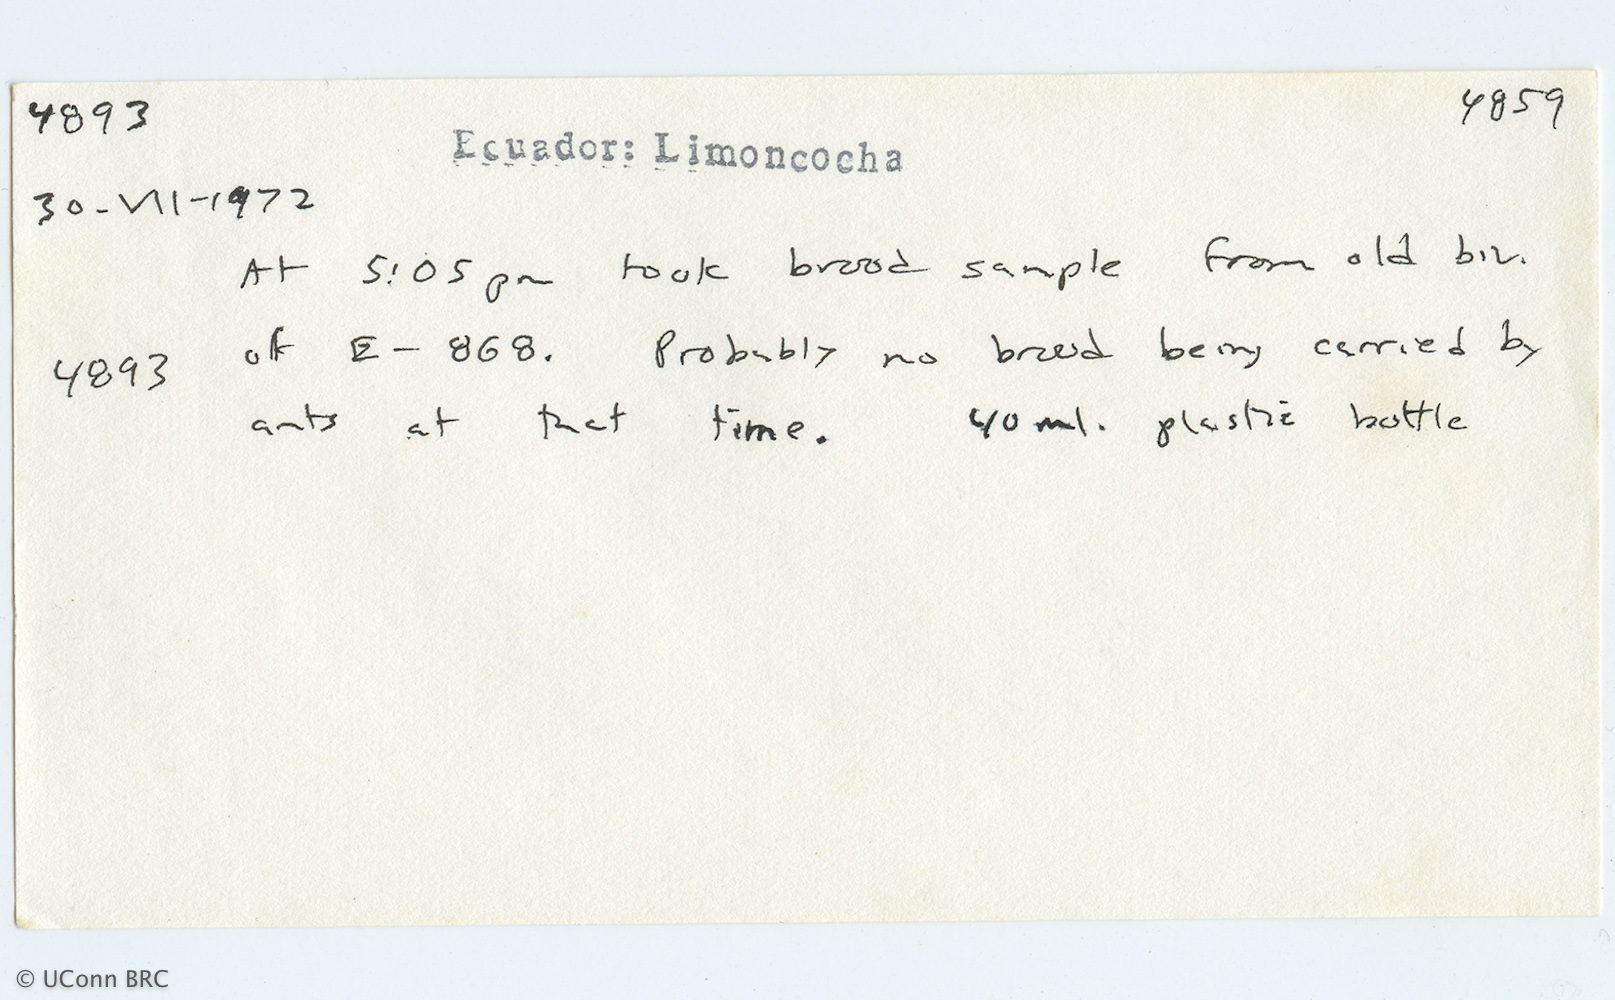 4893 4859
Ecuador: Limoncocha
30-VII-1972
At 5:05 pm took brood sample from old biv.
of E-868. Probably no brood being carried by
4893
ants at that time. 40 ml. plastic bottle
© UConn BRC